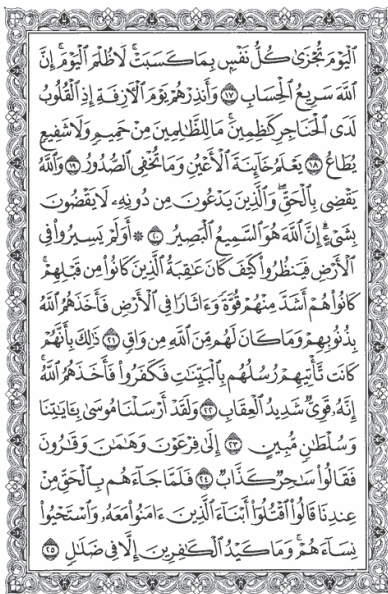 ٱلۡيَوۡمَ تُجۡزَىٰ كُلُّ نَفۡسِۭ بِمَا كَسَبَتۡۚ لَا ظُلۡمَ ٱلۡيَوۡمَۚ إِنَّ
ٱللَّهَ سَرِيعُ ٱلۡحِسَابِ ١٧ وَأَنذِرۡهُمۡ يَوۡمَ ٱلۡأٓزِفَةِ إِذِ ٱلۡقُلُوبُ
لَدَى ٱلۡحَنَاجِرِ كَٰظِمِينَۚ مَا لِلظَّٰلِمِينَ مِنۡ حَمِيمٖ وَلَا شَفِيعٖ
يُطَاعُ ١٨ يَعۡلَمُ خَآئِنَةَ ٱلۡأَعۡيُنِ وَمَا تُخۡفِي ٱلصُّدُورُ ١٩ وَٱللَّهُ
يَقۡضِي بِٱلۡحَقِّۖ وَٱلَّذِينَ يَدۡعُونَ مِن دُونِهِۦ لَا يَقۡضُونَ
بِشَيۡءٍۗ إِنَّ ٱللَّهَ هُوَ ٱلسَّمِيعُ ٱلۡبَصِيرُ ٢٠ ۞ أَوَلَمۡ يَسِيرُواْ فِي
ٱلۡأَرۡضِ فَيَنظُرُواْ كَيۡفَ كَانَ عَٰقِبَةُ ٱلَّذِينَ كَانُواْ مِن قَبۡلِهِمۡۚ
كَانُواْ هُمۡ أَشَدَّ مِنۡهُمۡ قُوَّةٗ وَءَاثَارٗا فِي ٱلۡأَرۡضِ فَأَخَذَهُمُ ٱللَّهُ
بِذُنُوبِهِمۡ وَمَا كَانَ لَهُم مِّنَ ٱللَّهِ مِن وَاقٖ ٢١ ذَٰلِكَ بِأَنَّهُمۡ
كَانَت تَّأۡتِيهِمۡ رُسُلُهُم بِٱلۡبَيِّنَٰتِ فَكَفَرُواْ فَأَخَذَهُمُ ٱللَّهُۚ
إِنَّهُۥ قَوِيّٞ شَدِيدُ ٱلۡعِقَابِ ٢٢ وَلَقَدۡ أَرۡسَلۡنَا مُوسَىٰ بِـَٔايَٰتِنَا
وَسُلۡطَٰنٖ مُّبِينٍ ٢٣ إِلَىٰ فِرۡعَوۡنَ وَهَٰمَٰنَ وَقَٰرُونَ
فَقَالُواْ سَٰحِرٞ كَذَّابٞ ٢٤ فَلَمَّا جَآءَهُم بِٱلۡحَقِّ مِنۡ
عِندِنَا قَالُواْ ٱقۡتُلُوٓاْ أَبۡنَآءَ ٱلَّذِينَ ءَامَنُواْ مَعَهُۥ وَٱسۡتَحۡيُواْ
نِسَآءَهُمۡۚ وَمَا كَيۡدُ ٱلۡكَٰفِرِينَ إِلَّا فِي ضَلَٰلٖ ٢٥